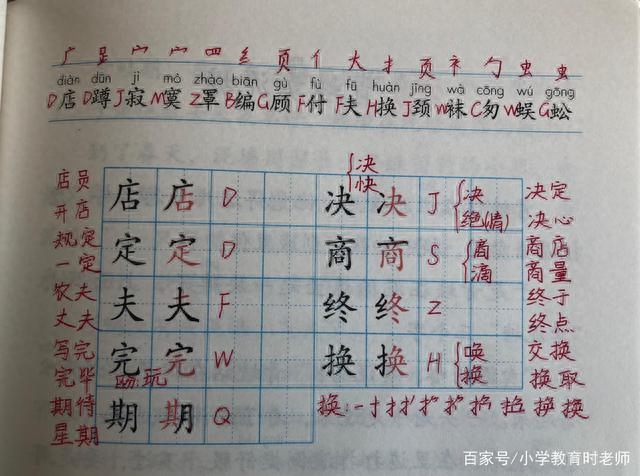 广 𧾷 宀 宀 罒 纟 页 亻 大 扌 页 衤 勹 虫 虫
diàn dūn jì mò zhào biān gù fù fū huàn jǐng wà cōng wú gōng
D店 D蹲 J寂 M寞 Z罩 B编 G顾 F付 F夫 H换 J颈 W袜 C匆 W蜈 G蚣
决
快
店员 店 店 D 决 决 J 决 决定
开店 绝(情) 决心
规定 定 定 D 商 商 S 商 商店
一定 滴 商量
农夫 夫 夫 F 终 终 Z 终于
丈夫 终点
写完 完 完 W 换 换 H 唤 交换
完毕 玩 换 换取
期待 期 期 Q 换:
星期
百家号/小学教育时老师